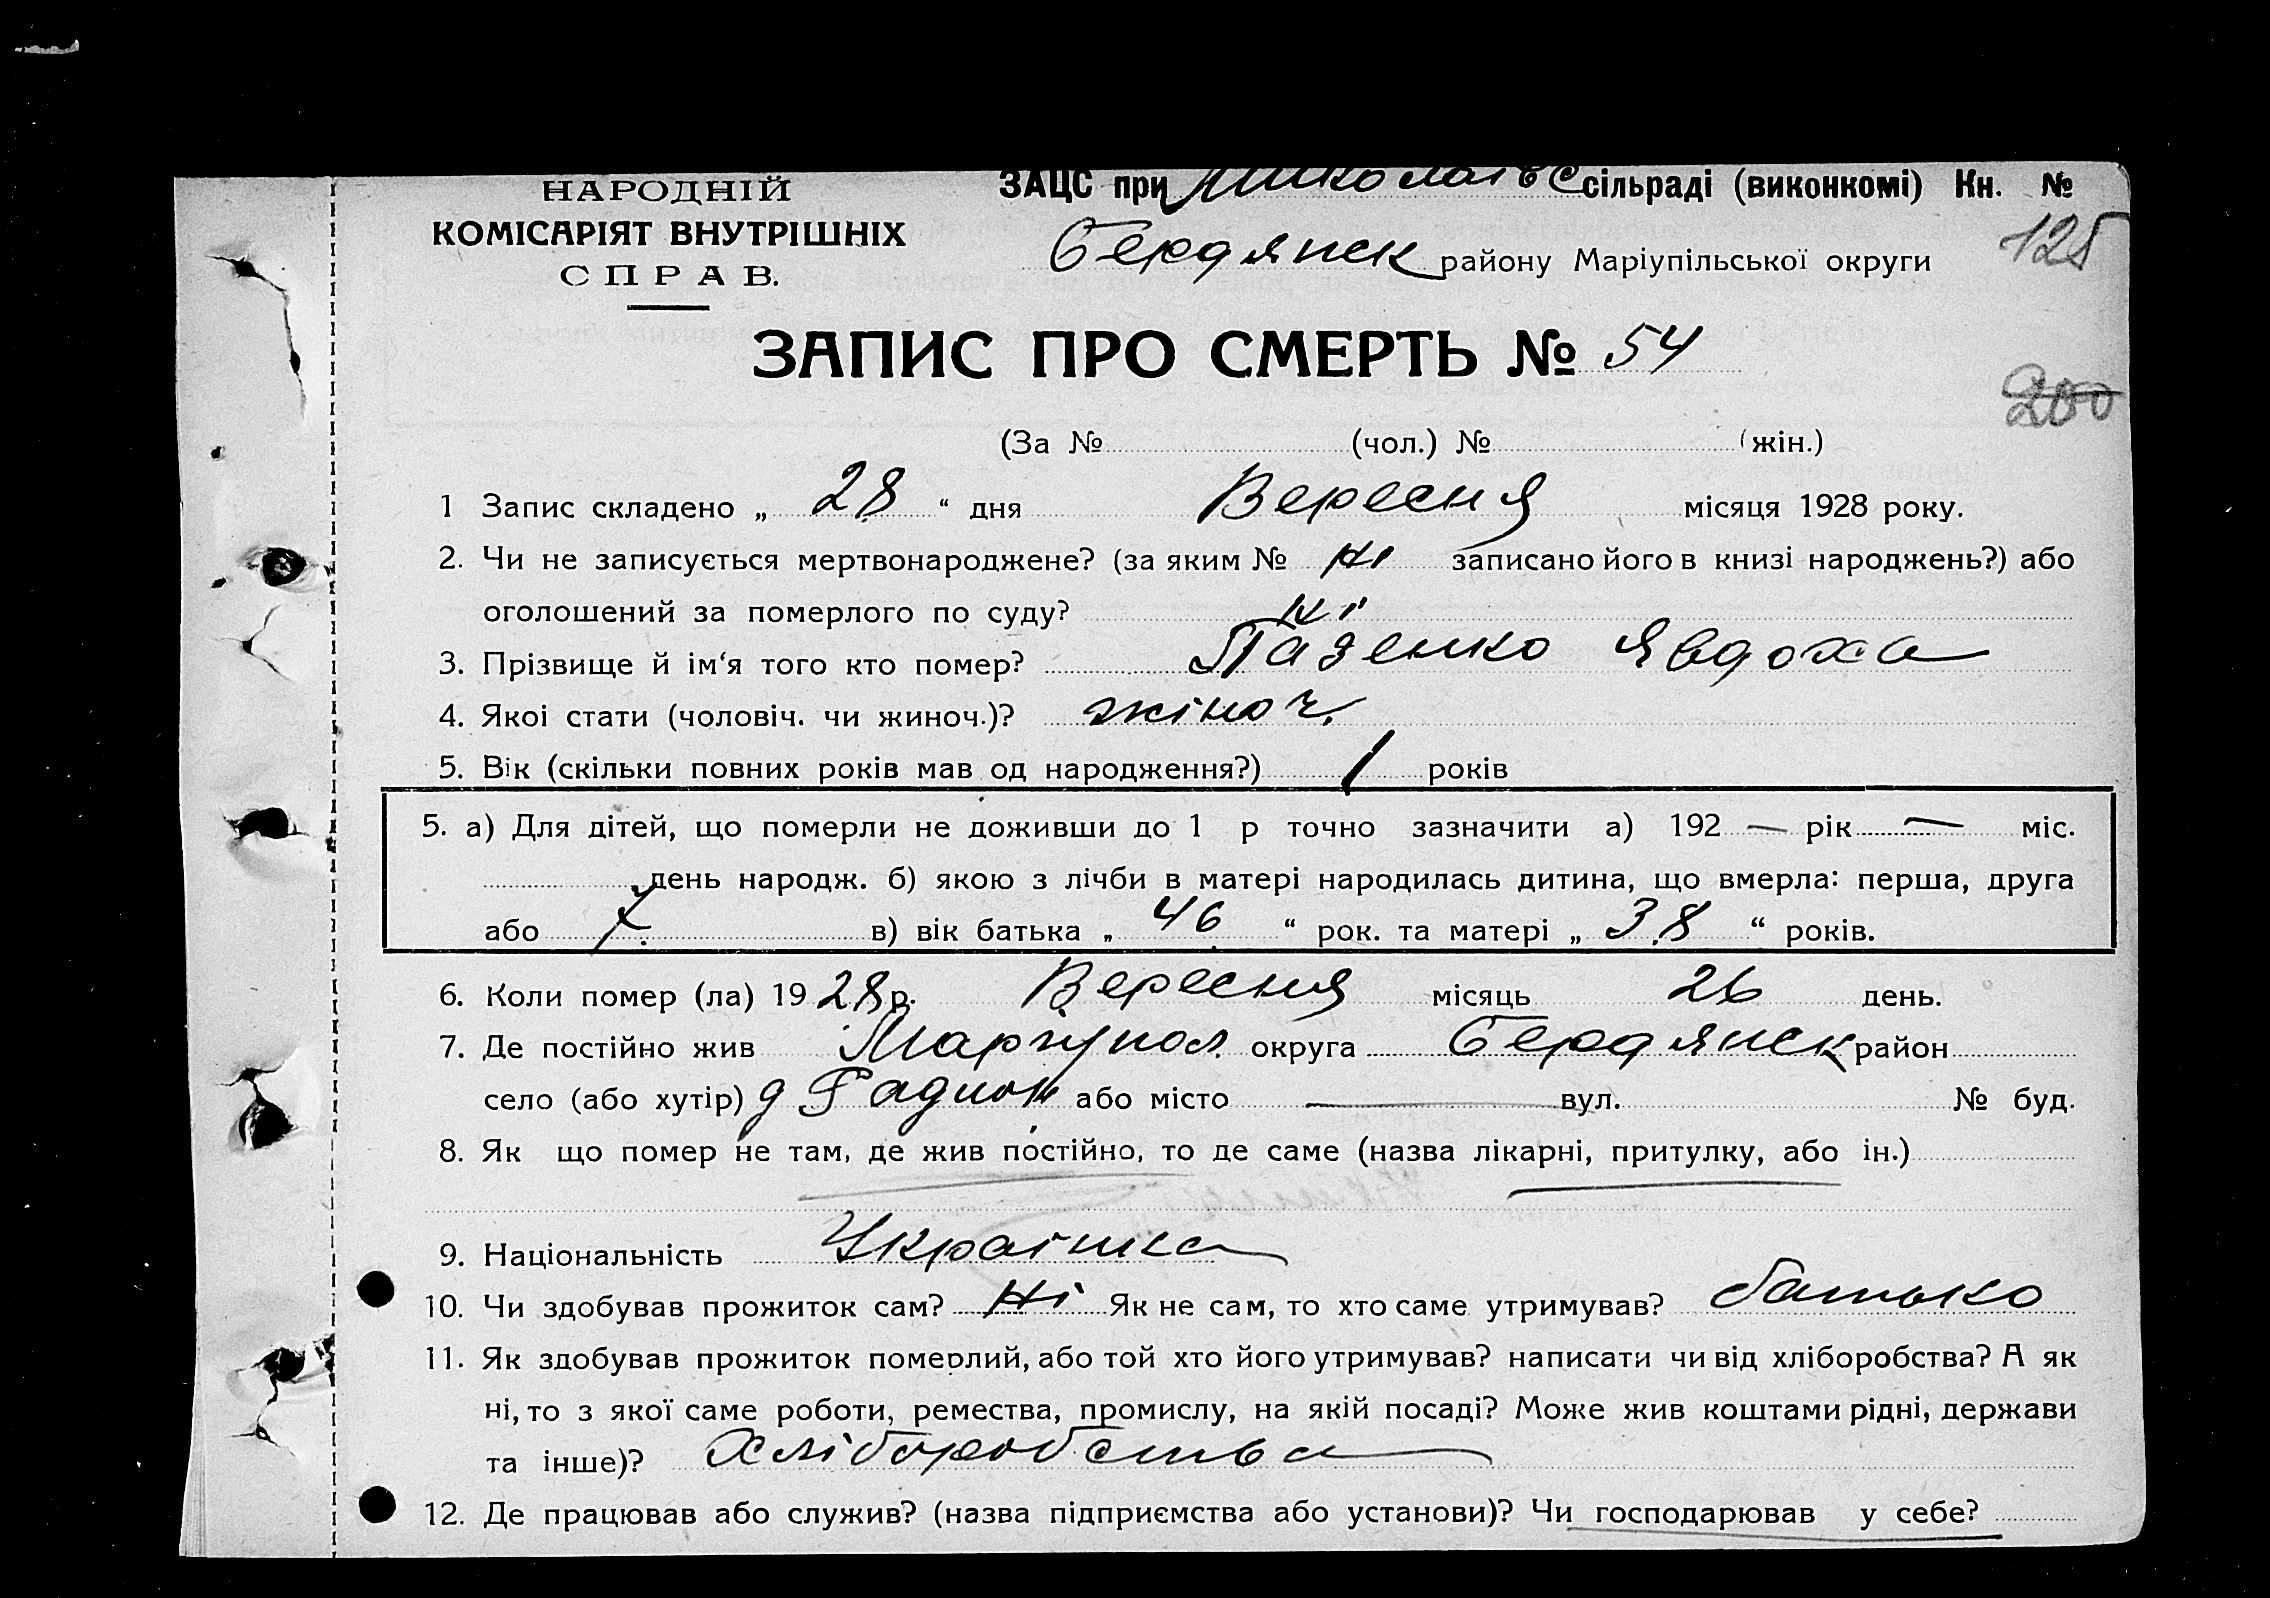 НАРОДНІЙ
КОМІСАРІЯТ ВНУТРІШНІХ
СПРАВ.
ЗАЦС при Миколаівс сільраді (виконкомі) Кн. №
125
Бердянск району Маріупільської округи
ЗАПИС ПРО СМЕРТЬ № 54
200
(За № (чол.) № (жін.)
1 Запис складено „ 28 “ дня Вересня місяця 1928 року.
2. Чи не записується мертвонароджене? (за яким № Ні записано його в книзі народжень?) або
оголошений за померлого по суду? Ні
3. Прізвище й ім‘я того кто помер? Пазенко Явдоха
4. Якоі стати (чоловіч. чи жиноч.)? жіноч.
5. Вік (скільки повних років мав од народження?) 1 років
5. а) Для дітей, що померли не доживши до 1 р точно зазначити а) 192 — рік — міс.
день народж. б) якою з лічби в матері народилась дитина, що вмерла: перша, друга
або 7. в) вік батька „ 46 “ рок. та матері „ 38 “ років.
6. Коли помер (ла) 1928 р. Вересня місяць 26 день.
7. Де постійно жив Маріупол. округа Бердянск район
село (або хутір) або місто — вул. № буд.
8. Як що помер не там, де жив постійно, то де саме (назва лікарні, притулку, або ін.)
9. Національність Українка
10. Чи здобував прожиток сам? Ні Як не сам, то хто саме утримував? батько
11. Як здобував прожиток померлий, або той хто його утримував? написати чи від хліборобства? А як
ні, то з якої саме роботи, ремества, промислу, на якій посаді? Може жив коштами рідні, держави
та інше)? Хліборобства
12. Де працював або служив? (назва підприємства або установи)? Чи господарював у себе?